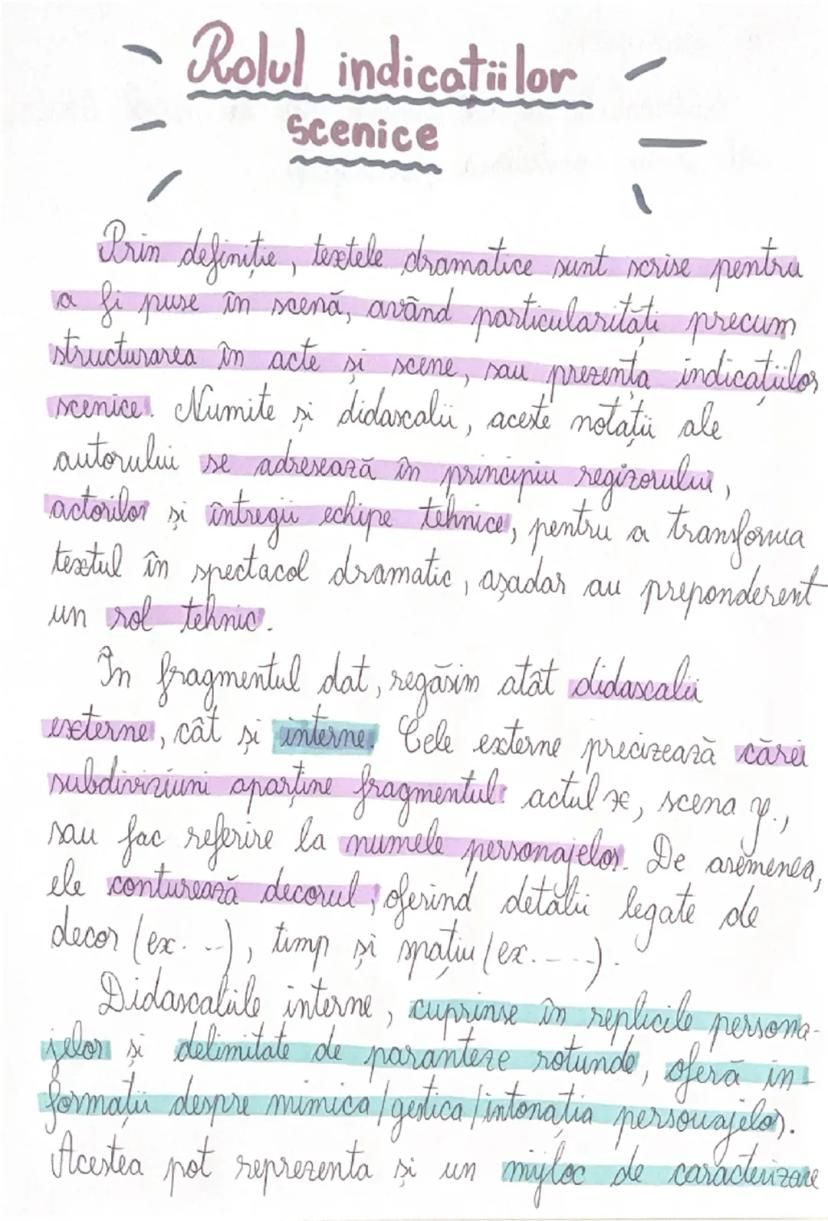 Rolul indicațiilor
scenice
Prin definiție, textele dramatice sunt scrise pentru
a fi puse în scenă, având particularități precum
structurarea în acte și scene, sau prezența indicațiilor
scenice. Numite și didascalii, aceste notații ale
autorului se adresează în principiu regizorului,
actorilor și întregii echipe tehnice, pentru a transforma
textul în spectacol dramatic, așadar au preponderent
un rol tehnic.
În fragmentul dat, regăsim atât didascalii
externe, cât și interne. Cele externe precizează cărei
subdiviziuni aparține fragmentul: actul x, scena y.,
sau fac referire la numele personajelor. De asemenea,
ele conturează decorul, oferind detalii legate de
decor (ex. ...), timp și spațiu (ex. ....).
Didascaliile interne, cuprinse în replicile persona-
jelor și delimitate de paranteze rotunde, oferă in-
formații despre mimica/gestica/intonația personajelor.
Acestea pot reprezenta și un mijloc de caracterizare